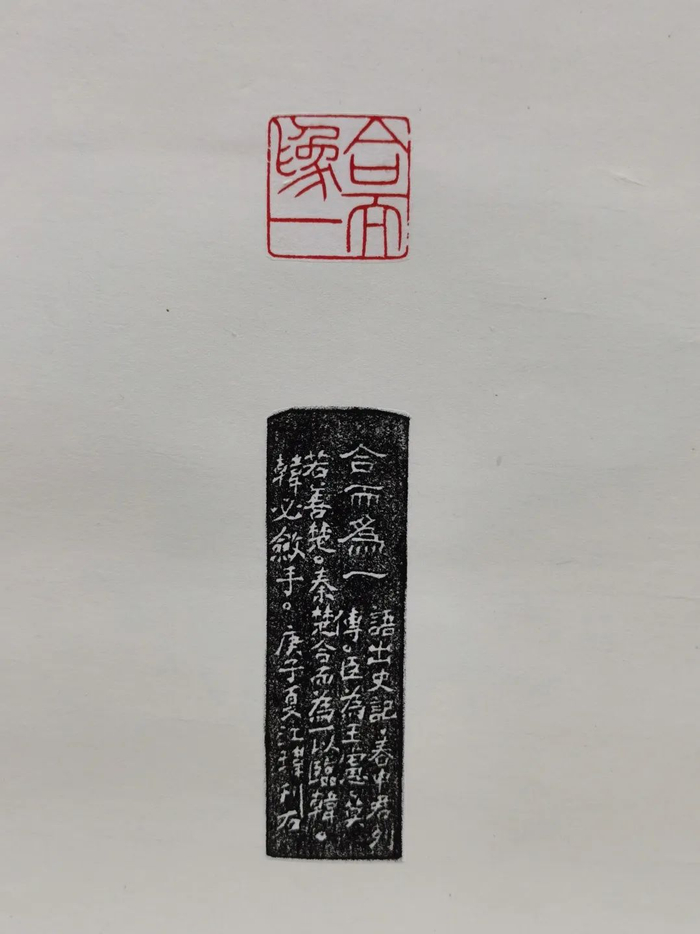 合而
為一
合而為一
語出史記·春申君列
傳。臣為王慮、莫
若善楚。秦楚合而為一以臨韓。
韓必斂手。庚子夏江刊石